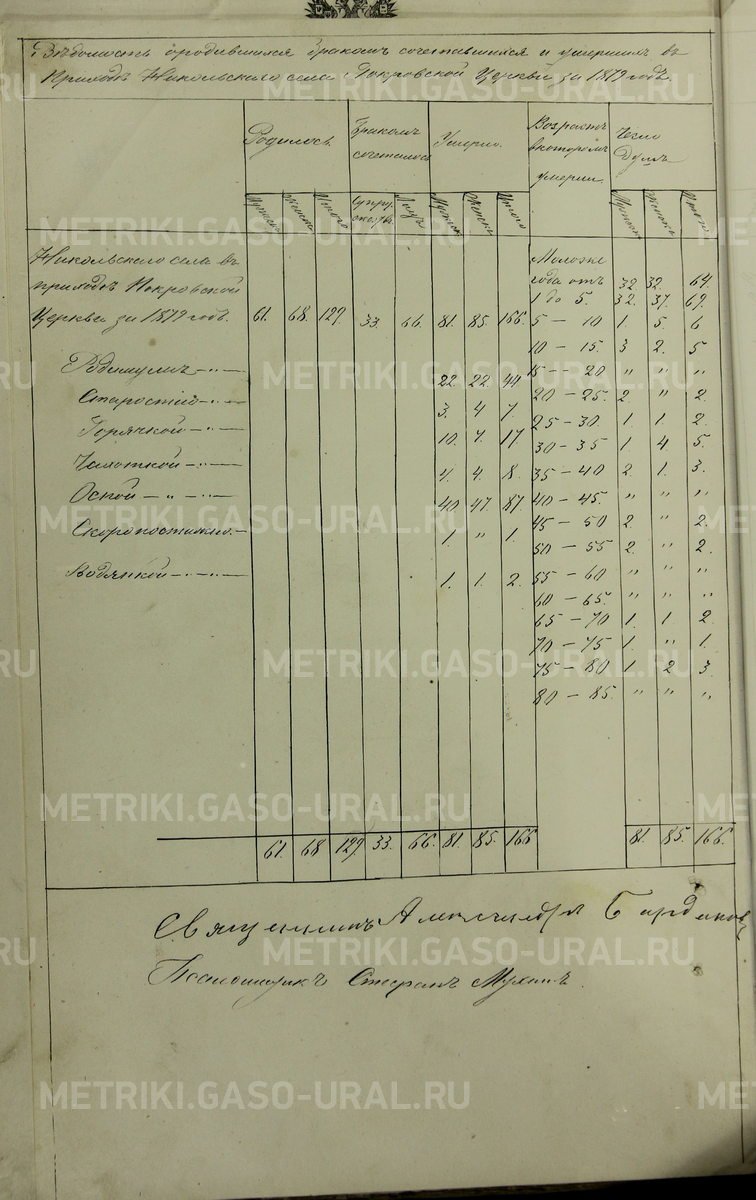 Вѣдомость о родившихся бракомъ сочетавшихся и умершихъ въ
Приходѣ Никольскаго села Покровской Церкви за 1879 годъ.
Родилось. Бракомъ сочеталось Умерло. Возрастъ въ которомъ умерли Число Душъ
Мужск. Женск. Итого Супружествъ Лицъ Мужск. Женск. Итого Мужск. Женск. Итого
Никольскаго села въ Моложе
приходѣ Покровской года отъ 32 32. 64.
1 до 5. 32. 37. 69.
Церкви за 1879 годъ. 61. 68. 129. 33. 66. 81. 85. 166. 5 — 10 1. 5. 6
10 — 15. 3 2. 5
Родимцемъ —"— 22. 22. 44 15 — 20 " " "
Старостію —"— 3. 4 7 20 — 25. 2 " 2.
25 — 30. 1. 1. 2.
Горячкой —"— 10. 7. 17 30 — 35 1. 4. 5.
Чахоткой —"— 4. 4. 8. 35 — 40 2. 1. 3.
Оспой —"—"— 40. 47. 87. 40 — 45. " " "
45 — 50 2. " 2.
Скоропостижно.— 1. " 1. 50 — 55 2. " 2.
Водянкой —"—"— 1. 1. 2. 55 — 60 " " "
60 — 65. " " "
65 — 70 1. 1 2.
70 — 75 1. " 1.
75 — 80 1. 2 3.
80 — 85. " " "
61. 68 129. 33. 66. 81. 85. 166 81. 85. 166.
Священникъ Александръ
Псаломщикъ Стефанъ Мухинъ.
METRIKI.GASO-URAL.RU